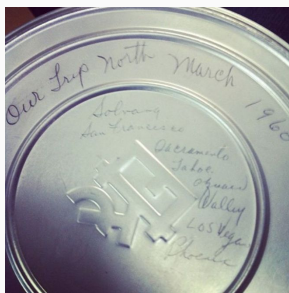 Our Trip North March 1960
Solvang
San Francisco
Sacramento
Tahoe
Valley
Las Vegas
Phoenix